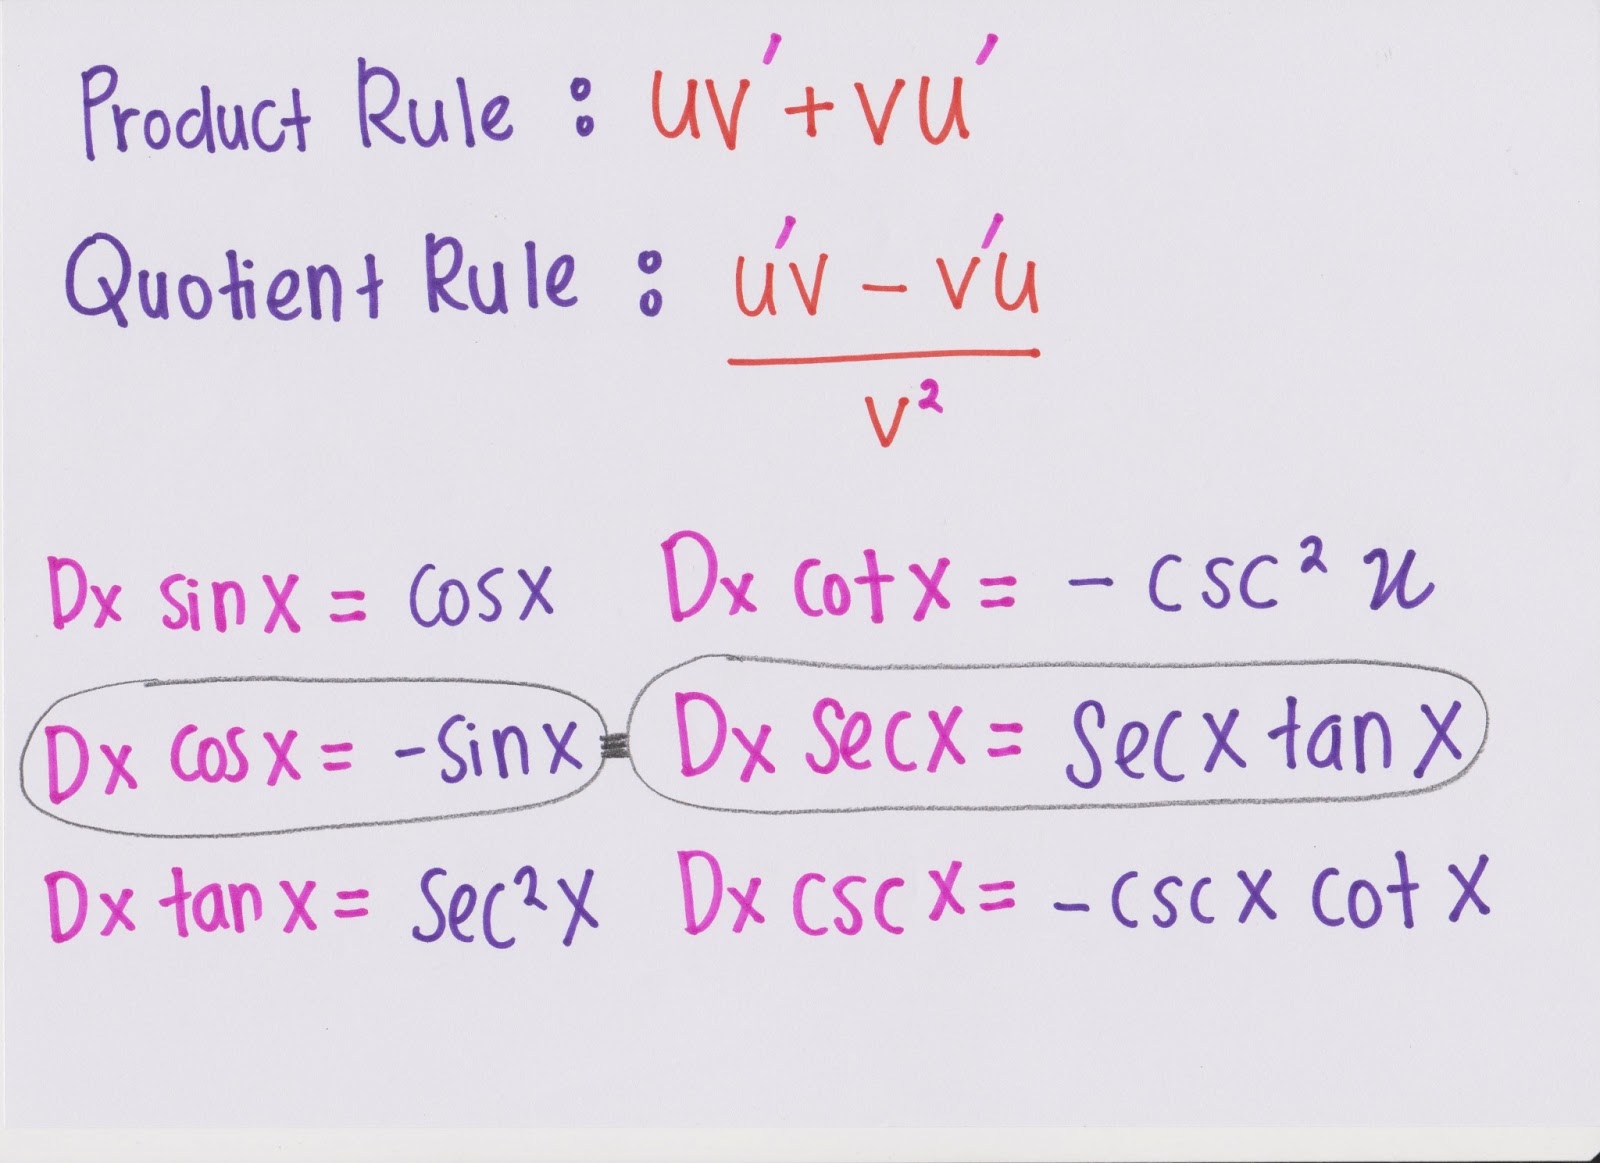 Product Rule : uv' + vu'
Quotient Rule : u'v - v'u
v²
Dx sin x = cos x Dx cot x = - csc² x
Dx cos x = -sin x Dx sec x = sec x tan x
Dx tan x = sec² x Dx csc x = - csc x cot x